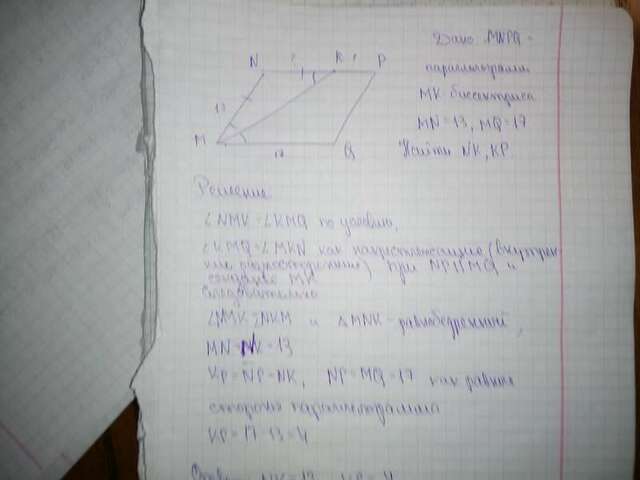 Дано: MNPQ -
параллелограмм
MK биссектриса
MN = 13, MQ = 17
Найти NK, KP
N ? K ? P
13
M 17 Q
Решение
∠NMK = ∠KMQ по условию,
∠KMQ = ∠MKN как накрестлежащие (внутрен
ние ) при NP || MQ и
секущие MK
Следовательно
∠NMK = ∠NKM и ΔMNK - равнобедренный,
MN = NK = 13
KP = NP - NK, NP = MQ = 17 как равные
стороны параллелограмма
KP = 17 - 13 = 4
NK = 13 KP = 4